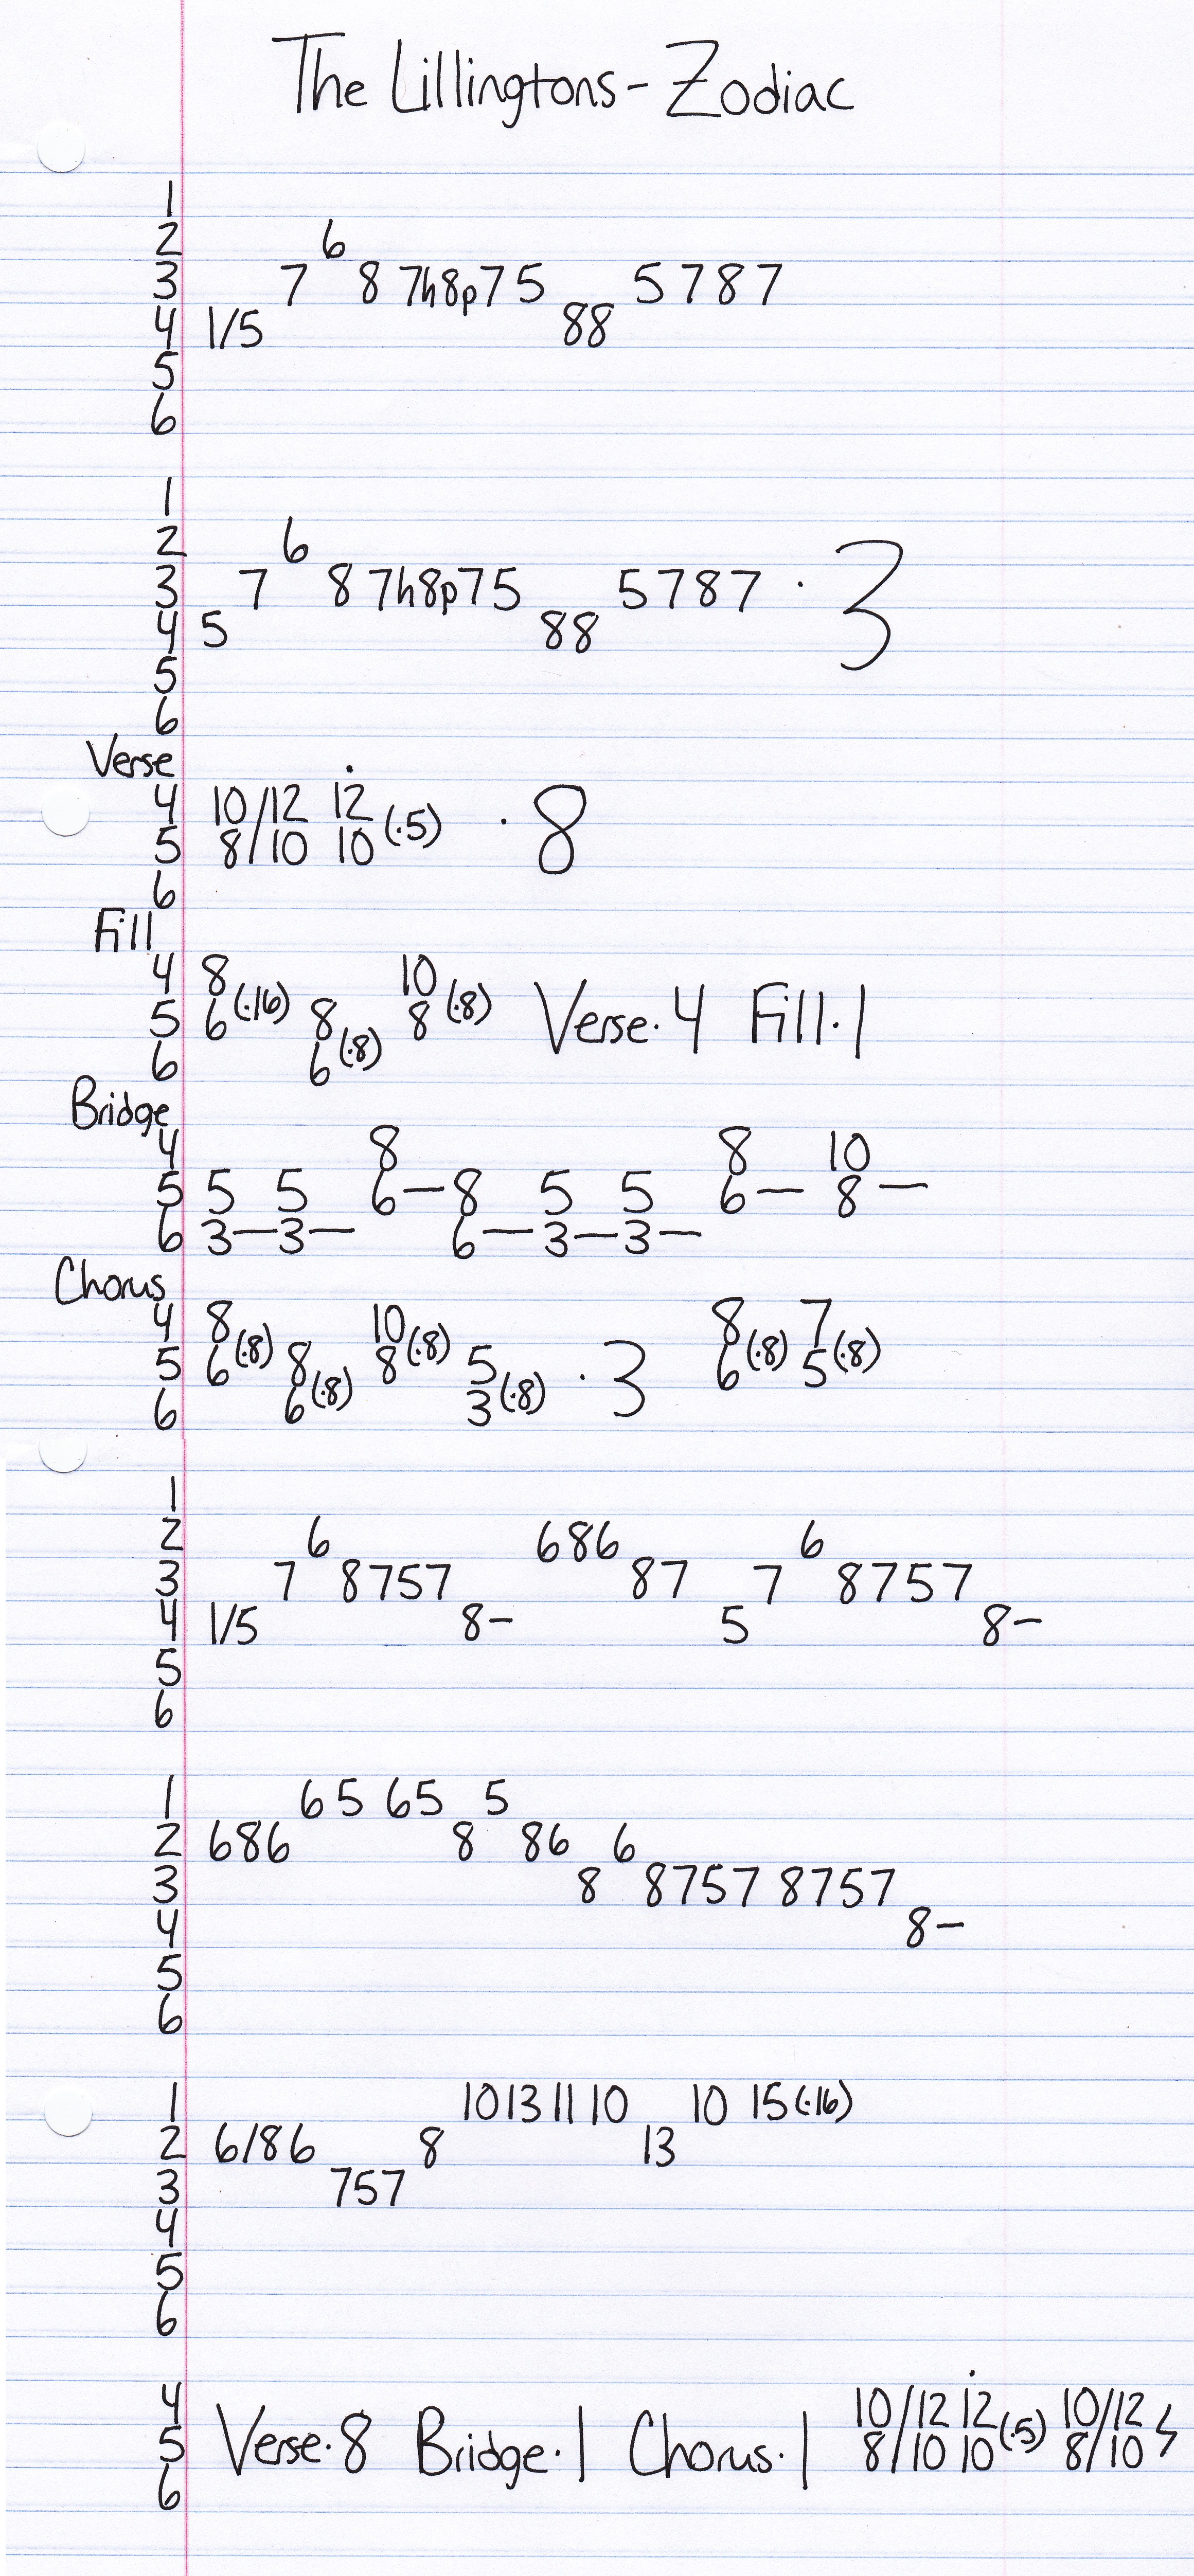 The Lillingtons - Zodiac
1
2 6
3 7 8 7h8p75 5787
4 1/5 88
5
6
1
2 6
3 7 8 7h8p75 5787 · 3
4 5 88
5
6
Verse
4 10/12 12
5 8/10 10 (·5) · 8
6
Fill
4 8 10
5 6 (·16) 8 8 (·8) Verse·4 Fill·1
6 6 (·8)
Bridge
4 8 8 10
5 5 5 6— 8 5 5 6— 8—
6 3—3— 6—3—3—
Chorus
4 8 10 8 7
5 6 (·8) 8 8 (·8) 5 · 3 6 (·8) 5 (·8)
6 6 (·8) 3 (·8)
1
2 6 686 6
3 7 8757 87 7 8757
4 1/5 8— 5 8—
5
6
1 65 65 5
2 686 8 86 6
3 8 8757 8757
4 8—
5
6
1 10 13 11 10 10 15 (·16)
2 6/86 8 13
3 757
4
5
6
4 10/12 12 10/12
5 Verse·8 Bridge·1 Chorus·1 8/10 10 (·5) 8/10
6